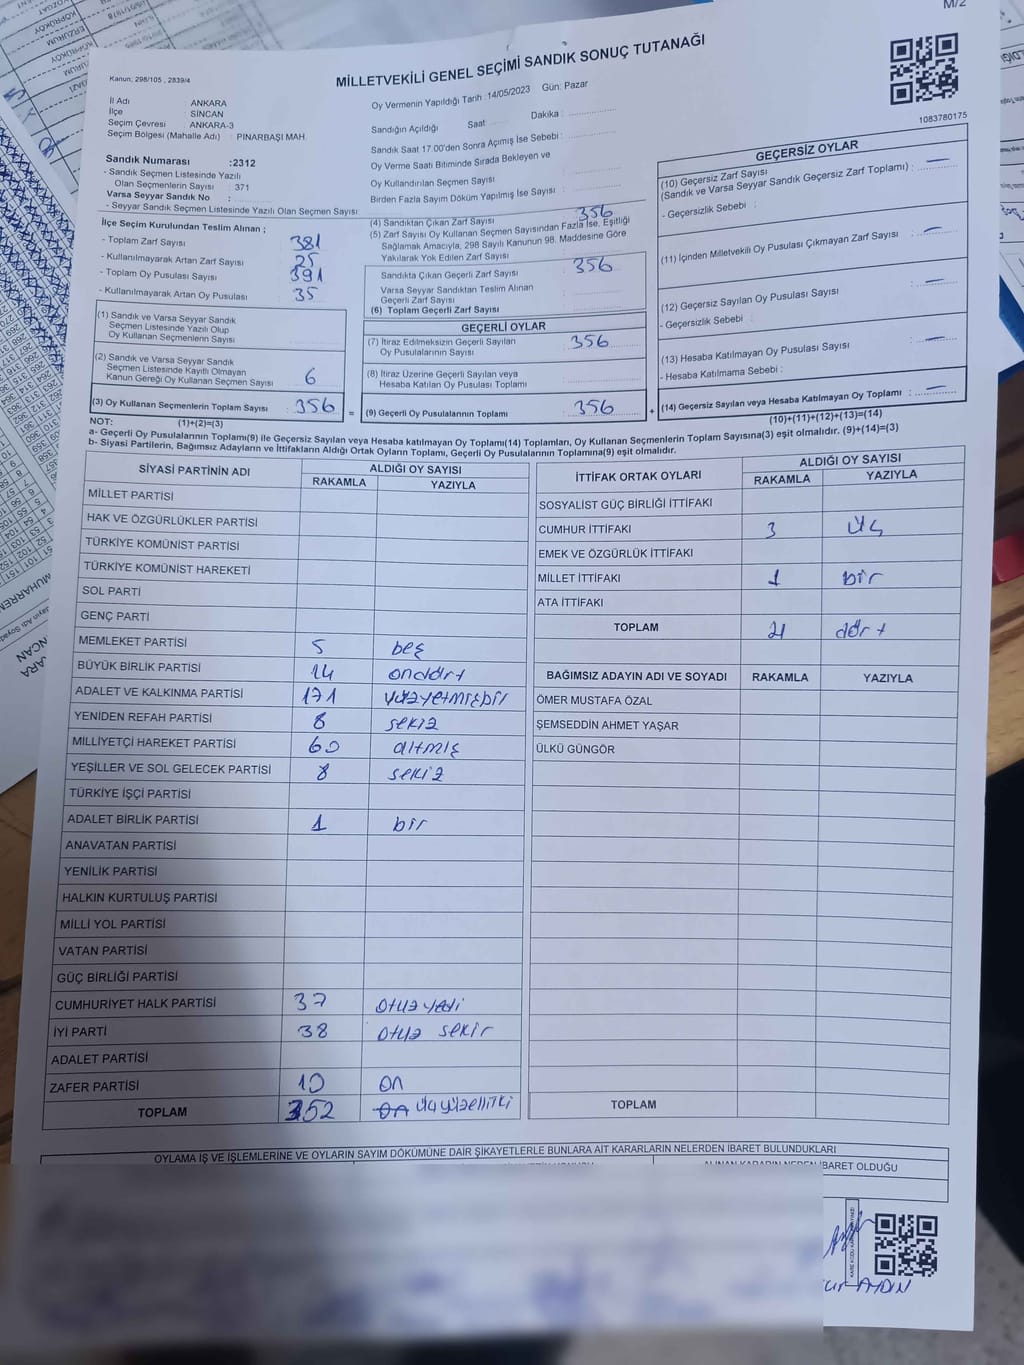 M/2
Kanun; 298/105 , 2839/4
MİLLETVEKİLİ GENEL SEÇİMİ SANDIK SONUÇ TUTANAĞI
1083780175
İl Adı : ANKARA
İlçe : SİNCAN
Seçim Çevresi : ANKARA-3
Seçim Bölgesi (Mahalle Adı) : PINARBAŞI MAH.
Sandık Numarası :2312
- Sandık Seçmen Listesinde Yazılı
Olan Seçmenlerin Sayısı : 371
Varsa Seyyar Sandık No :
- Seyyar Sandık Seçmen Listesinde Yazılı Olan Seçmen Sayısı:
Oy Vermenin Yapıldığı Tarih :14/05/2023 Gün: Pazar
Sandığın Açıldığı Saat Dakika :
Sandık Saat 17.00'den Sonra Açımış İse Sebebi :
Oy Verme Saati Bitiminde Sırada Bekleyen ve
Oy Kullandırılan Seçmen Sayısı
Birden Fazla Sayım Döküm Yapılmış İse Sayısı :
İlçe Seçim Kurulundan Teslim Alınan ;
- Toplam Zarf Sayısı : 381
- Kullanılmayarak Artan Zarf Sayısı : 25
- Toplam Oy Pusulası Sayısı : 391
- Kullanılmayarak Artan Oy Pusulası : 35
(1) Sandık ve Varsa Seyyar Sandık
Seçmen Listesinde Yazılı Olup
Oy Kullanan Seçmenlerin Sayısı :
(2) Sandık ve Varsa Seyyar Sandık
Seçmen Listesinde Kayıtlı Olmayan
Kanun Gereği Oy Kullanan Seçmen Sayısı : 6
(3) Oy Kullanan Seçmenlerin Toplam Sayısı : 356 =
(1)+(2)=(3)
(4) Sandıktan Çıkan Zarf Sayısı 356
(5) Zarf Sayısı Oy Kullanan Seçmen Sayısından Fazla İse, Eşitliği
Sağlamak Amacıyla, 298 Sayılı Kanunun 98. Maddesine Göre
Yakılarak Yok Edilen Zarf Sayısı :
Sandıkta Çıkan Geçerli Zarf Sayısı : 356
Varsa Seyyar Sandıktan Teslim Alınan
Geçerli Zarf Sayısı
(6) Toplam Geçerli Zarf Sayısı
GEÇERLİ OYLAR
(7) İtiraz Edilmeksizin Geçerli Sayılan
Oy Pusulalarının Sayısı : 356
(8) İtiraz Üzerine Geçerli Sayılan veya
Hesaba Katılan Oy Pusulası Toplamı :
(9) Geçerli Oy Pusulalarının Toplamı : 356 +
GEÇERSİZ OYLAR
(10) Geçersiz Zarf Sayısı
(Sandık ve Varsa Seyyar Sandık Geçersiz Zarf Toplamı) : —
- Geçersizlik Sebebi :
(11) İçinden Milletvekili Oy Pusulası Çıkmayan Zarf Sayısı : —
(12) Geçersiz Sayılan Oy Pusulası Sayısı : —
- Geçersizlik Sebebi :
(13) Hesaba Katılmayan Oy Pusulası Sayısı : —
- Hesaba Katılmama Sebebi :
(14) Geçersiz Sayılan veya Hesaba Katılmayan Oy Toplamı : —
(10)+(11)+(12)+(13)=(14)
NOT:
a- Geçerli Oy Pusulalarının Toplamı(9) ile Geçersiz Sayılan veya Hesaba katılmayan Oy Toplamı(14) Toplamları, Oy Kullanan Seçmenlerin Toplam Sayısına(3) eşit olmalıdır. (9)+(14)=(3)
b- Siyasi Partilerin, Bağımsız Adayların ve İttifakların Aldığı Ortak Oyların Toplamı, Geçerli Oy Pusulalarının Toplamına(9) eşit olmalıdır.
SİYASİ PARTİNİN ADI ALDIĞI OY SAYISI
RAKAMLA YAZIYLA
MİLLET PARTİSİ
HAK VE ÖZGÜRLÜKLER PARTİSİ
TÜRKİYE KOMÜNİST PARTİSİ
TÜRKİYE KOMÜNİST HAREKETİ
SOL PARTİ
GENÇ PARTİ
MEMLEKET PARTİSİ 5 beş
BÜYÜK BİRLİK PARTİSİ 14 ondört
ADALET VE KALKINMA PARTİSİ 171 yüzyetmişbir
YENİDEN REFAH PARTİSİ 8 sekiz
MİLLİYETÇİ HAREKET PARTİSİ 60 altmış
YEŞİLLER VE SOL GELECEK PARTİSİ 8 sekiz
TÜRKİYE İŞÇİ PARTİSİ
ADALET BİRLİK PARTİSİ 1 bir
ANAVATAN PARTİSİ
YENİLİK PARTİSİ
HALKIN KURTULUŞ PARTİSİ
MİLLİ YOL PARTİSİ
VATAN PARTİSİ
GÜÇ BİRLİĞİ PARTİSİ
CUMHURİYET HALK PARTİSİ 37 otuz yedi
İYİ PARTİ 38 otuz sekir
ADALET PARTİSİ
ZAFER PARTİSİ 10 on
TOPLAM 352 on üçyüzelliiki
İTTİFAK ORTAK OYLARI ALDIĞI OY SAYISI
RAKAMLA YAZIYLA
SOSYALİST GÜÇ BİRLİĞİ İTTİFAKI
CUMHUR İTTİFAKI 3 üç
EMEK VE ÖZGÜRLÜK İTTİFAKI
MİLLET İTTİFAKI 1 bir
ATA İTTİFAKI
TOPLAM 4 dört
BAĞIMSIZ ADAYIN ADI VE SOYADI RAKAMLA YAZIYLA
ÖMER MUSTAFA ÖZAL
ŞEMSEDDİN AHMET YAŞAR
ÜLKÜ GÜNGÖR
TOPLAM
OYLAMA İŞ VE İŞLEMLERİNE VE OYLARIN SAYIM DÖKÜMÜNE DAİR ŞİKAYETLERLE BUNLARA AİT KARARLARIN NELERDEN İBARET BULUNDUKLARI
İBARET OLDUĞU
AYDIN